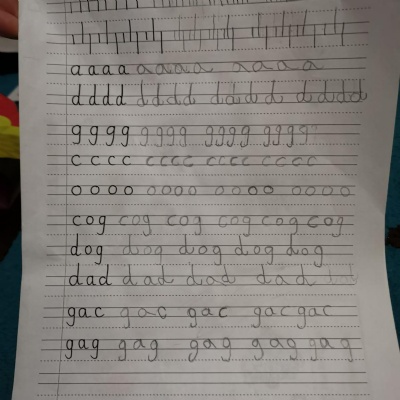 a a a a a a a a a a a a
d d d d d d d d d d d d d d d d
g g g g g g g g g g g g g g g g
c c c c c c c c c c c c c c c c
o o o o o o o o o o o o o o o o
cog cog cog cog cog cog
dog dog dog dog dog
dad dad dad dad
gac gac gac gac gac
gag gag gag gag gag